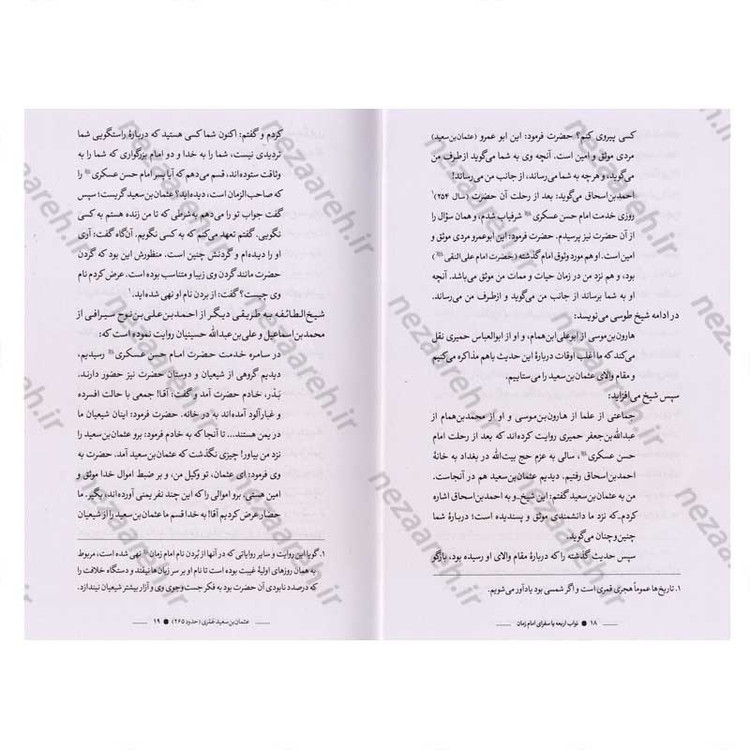 کسی پیروی کنم؟ حضرت فرمود: این ابو عمرو (عثمان‌بن‌سعید)
مردی موثق و امین است. آنچه وی به شما می‌گوید ازطرف من
می‌گوید، و هرچه به شما می‌رساند، از جانب من می‌رساند!
احمدبن‌اسحاق می‌گوید: بعد از رحلت آن حضرت (سال ۲۵۴)۱
روزی خدمت امام حسن عسکری شرفیاب شدم، و همان سؤال را
از آن حضرت نیز پرسیدم. حضرت فرمود: این ابوعمرو مردی موثق و
امین است. او هم مورد وثوق امام گذشته (حضرت امام علی النقی)
بود، و هم نزد من در زمان حیات و ممات من موثق می‌باشد. آنچه
او به شما برساند از جانب من می‌گوید و ازطرف من می‌رساند.
در ادامه شیخ طوسی می‌نویسد:
هارون‌بن‌موسی از ابوعلی‌ابن‌همام، و او از ابوالعباس حمیری نقل
می‌کند که ما اغلب اوقات دربارهٔ این حدیث باهم مذاکره می‌کنیم
و مقام والای عثمان‌بن‌سعید را می‌ستاییم.
سپس شیخ می‌افزاید:
جماعتی از علما از هارون‌بن‌موسی و او از محمدبن‌همام از
عبدالله‌بن‌جعفر حمیری روایت کرده‌اند که بعد از رحلت امام
حسن عسکری، سالی به عزم حج بیت‌الله در بغداد به خانهٔ
احمدبن‌اسحاق رفتیم. دیدیم عثمان‌بن‌سعید هم در آنجاست.
من به عثمان‌بن‌سعید گفتم: این شیخ ـ و به احمدبن‌اسحاق اشاره
کردم ـ که نزد ما دانشمندی موثق و پسندیده است؛ دربارهٔ شما
چنین‌وچنان می‌گوید.
سپس حدیث گذشته را که دربارهٔ مقام والای او رسیده بود، بازگو
۱. تاریخ‌ها عموماً هجری قمری است و اگر شمسی بود یادآور می‌شویم.
۱۸ ● نواب اربعه یا سفرای امام زمان
کردم و گفتم: اکنون شما کسی هستید که دربارهٔ راستگویی شما
تردیدی نیست، شما را به خدا و دو امام بزرگواری که شما را به
وثاقت ستوده‌اند، قسم می‌دهم که آیا پسر امام حسن عسکری را
که صاحب‌الزمان است، دیده‌اید؟ عثمان‌بن‌سعید گریست؛ سپس
گفت جواب تو را می‌دهم به‌شرطی که تا من زنده هستم به کسی
نگویی. گفتم تعهد می‌کنم که به کسی نگویم. آن‌گاه گفت: آری
او را دیده‌ام و گردنش چنین است. منظورش این بود که گردن
حضرت مانند گردن وی زیبا و متناسب بوده است. عرض کردم نام
وی چیست؟ گفت: از بردن نام او نهی شده‌اید.۱
شیخ‌الطائفه به طریقی دیگر از احمدبن‌علی‌بن‌نوح سیرافی از
محمدبن‌اسماعیل و علی‌بن‌عبدالله حسنیان روایت نموده است که
در سامره خدمت حضرت امام حسن عسکری رسیدیم،
دیدیم گروهی از شیعیان و دوستان حضرت نیز حضور دارند.
بَدْر، خادم حضرت آمد و گفت: آقا! جمعی با حالت افسرده
و غبارآلود آمده‌اند به در خانه. حضرت فرمود: اینان شیعیان ما
در یمن هستند... تا آنجا که به خادم فرمود: برو عثمان‌بن‌سعید را
نزد من بیاور! چیزی نگذشت که عثمان‌بن‌سعید آمد. حضرت به
وی فرمود: ای عثمان، تو وکیل من، و بر ضبط اموال خدا موثق و
امین هستی. برو اموالی را که این چند نفر یمنی آورده‌اند، بگیر. ما
حضار عرض کردیم آقا! به خدا قسم ما عثمان‌بن‌سعید را از شیعیان
۱. گویا این روایت و سایر روایاتی که در آنها از بُردن نام امام زمان نهی شده است، مربوط
به همان روزهای اولیهٔ غیبت بوده است تا نام او بر سر زبان‌ها نیفتد و دستگاه خلافت را
که درصدد نابودی آن حضرت بود به فکر جست‌وجوی وی و آزار بیشتر شیعیان نیندازد.
عثمان بن سعید عَمْری (حدود ۲۶۵) ● ۱۹
nezaareh.ir